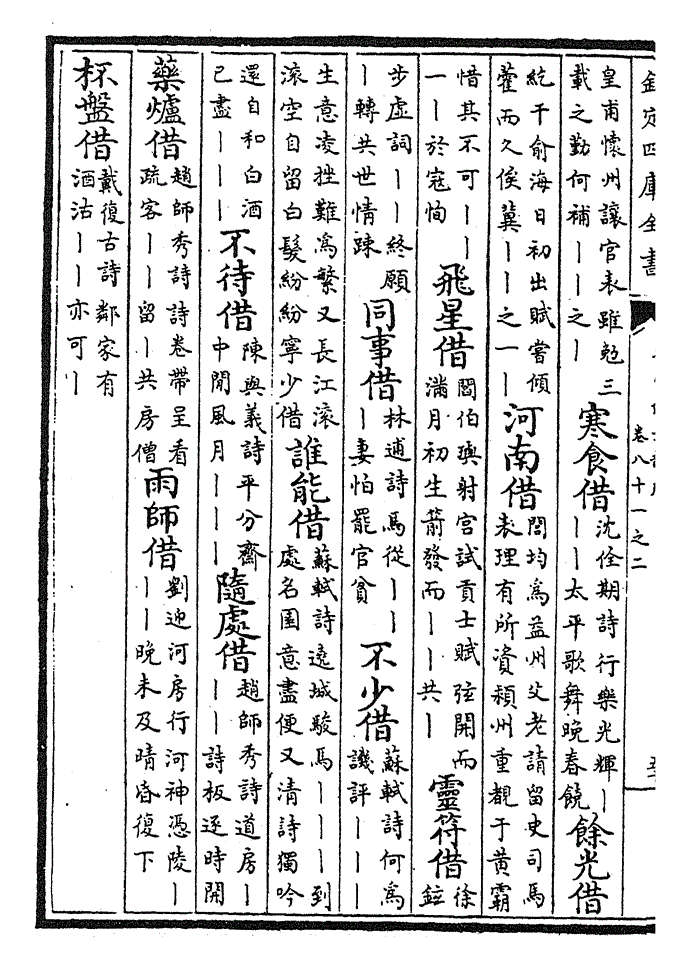 欽定四庫全書
卷八十一之二
皇甫懷州讓官表雖勉三
載之勤何補丨丨之丨
寒食借
沈佺期詩行樂光輝丨
丨丨太平歌舞晚春饒
餘光借
紇干俞海日初出賦嘗傾
藿而久俟冀丨丨之一丨
河南借
閻均為益州父老請留史司馬
表理有所資潁州重覩于黄霸
惜其不可丨丨
一丨於寇恂
飛星借
閻伯璵射宮試貢士賦弦開而
滿月初生箭發而丨丨共丨
靈符借
徐
鉉
步虛詞丨丨終願
丨轉共世情踈
同事借
林逋詩馬從丨丨
丨妻怕罷官貧
不少借
蘇軾詩何為
譏評丨丨丨
生意凌挫難為繁又長江滾
滾空自留白髮紛紛寧少借
誰能借
蘇軾詩遠城駿馬丨丨丨到
處名園意盡便又清詩獨吟
還自和白酒
已盡丨丨丨
不待借
陳與義詩平分齋
中閒風月丨丨丨
隨處借
趙師秀詩道房丨
丨丨詩板逐時開
藥爐借
趙師秀詩詩卷帶呈看
疏客丨丨留丨共房僧
雨師借
劉迎河房行河神憑陵丨
丨丨晚未及晴昏復下
杯盤借
戴復古詩鄰家有
酒沽丨丨亦可丨